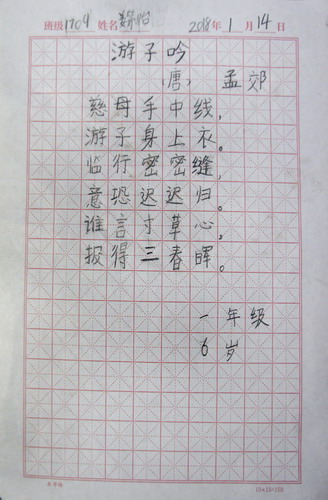 班级1704 姓名 2018年1月14日
游子吟
(唐) 孟郊
慈母手中线,
游子身上衣。
临行密密缝,
意恐迟迟归。
谁言寸草心,
报得三春晖。
一年级
6岁